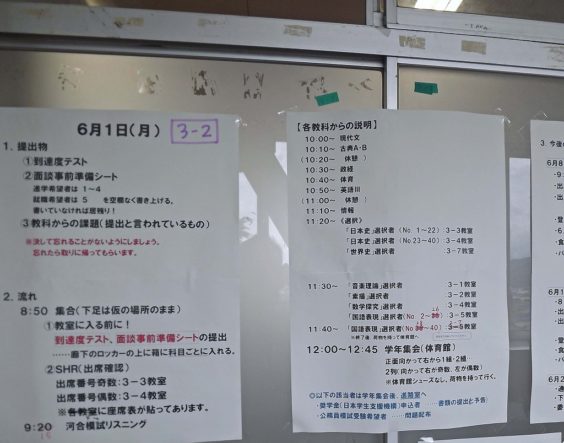 6月1日(月) 3-2
1. 提出物
①到達度テスト
②面談事前準備シート
進学希望者は 1～4
就職希望者は 5 を空欄なく書き上げる。
書いていなければ居残り!
③教科からの課題(提出と言われているもの)
※決して忘れることがないようにしましょう。
忘れたら取りに帰ってもらいます。
2. 流れ
8:50 集合(下足は仮の場所のまま)
①教室に入る前に!
到達度テスト、面談事前準備シートの提出
……廊下のロッカーの上に箱に科目ごとに入れる。
②SHR(出席確認)
出席番号奇数:3-3教室
出席番号偶数:3-4教室
※各教室に座席表が貼ってあります。
9:20 河合模試リスニング
【各教科からの説明】
10:00～ 現代文
10:10～ 古典A・B
(10:20～ 休憩 )
10:30～ 政経
10:40～ 体育
10:50～ 英語Ⅲ
(11:00～ 休憩 )
11:10～ 情報
11:20～ 《選択》
「日本史」選択者 (No. 1～22):3-3教室
「日本史」選択者 (No.23～40):3-4教室
「世界史」選択者 :3-7教室
11:30～ 「音楽理論」選択者 :3-1教室
「素描」選択者 :3-2教室
「数学探究」選択者 :3-4教室
「国語表現」選択者(No. 2～ :3-5教室
11:40～ 「国語表現」選択者(No. ～40):3-5教室
12:00～12:45 学年集会(体育館)
正面向かって右から1組・2組
2列(向かって右が奇数、左が偶数)
※体育館シューズなし、荷物を持って行く。
◇以下の該当者は学年集会後、進路室へ
・奨学金(日本学生支援機構)申込者 ……書類の提出と予告
・公務員模試受験希望者 ……問題配布
3. 今後
6月8
6月1
6月2